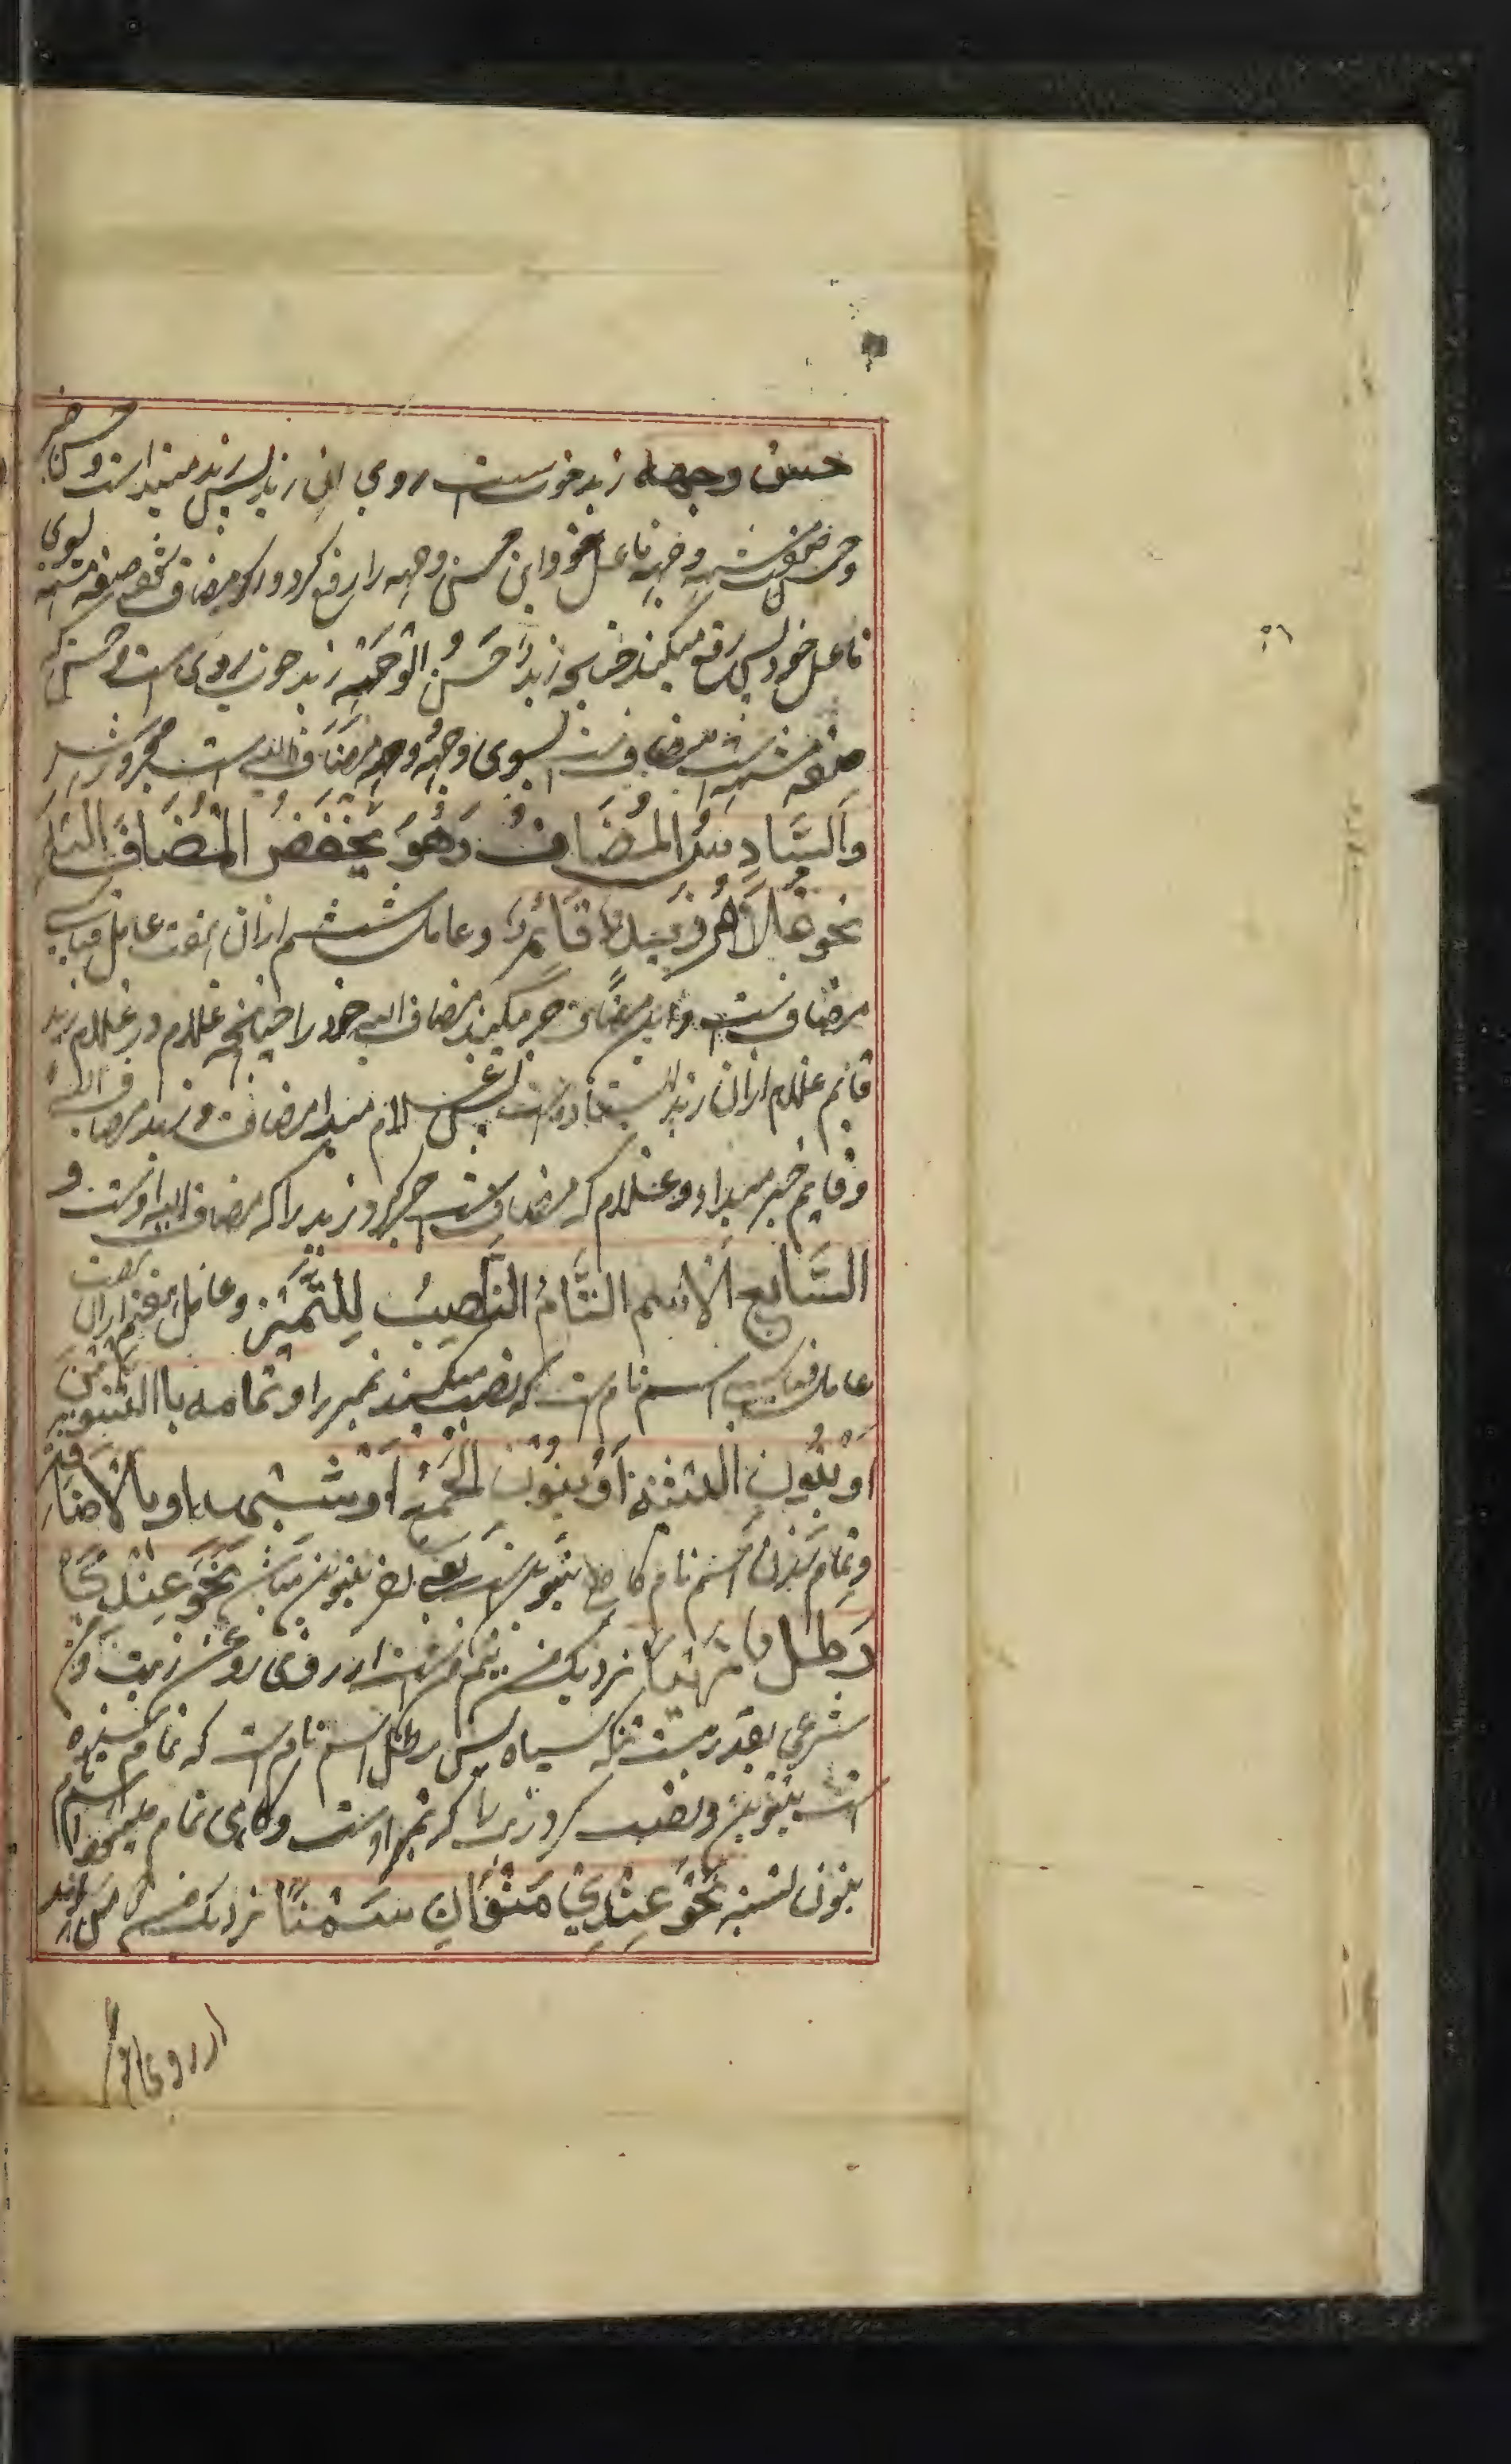 حسن وجهه زید خوب ست روی این زید پس زید مبتدا است وحسن خبر
وحسن صفت مشبه وجهه فاعل خود این حسن وجهه را رفع کرد واگر مضاف شود صفة مشبه بسوی
فاعل خود پس رفع میکند چنانچه زیدٌ حَسَنُ الْوَجْهِ زید خوب روی است حسن که
صفة مشبه است مضافست بسوی وجه و وجه مضاف الیه است مجرور
والسَّادِسُ المُضَافُ وَهُوَ يَخْفَضُ المُضَافَ اليه
نحو غلامُ زيدٍ قَائِمٌ وعامل ششم ازان هفت عامل قیاسی
مضافست واین مضاف جر میکند مضاف الیه خود را چنانچه غلام در غلام زید
قایم غلام ازان زید ایستاده است پس غلام مبتدا مضاف و زید مضاف الیه
وقایم خبر مبتدا و غلام که مضافست جر کرد زید را که مضاف الیه اوست و
السَّابع الْاِسْم التَّامُ النَّاصِبُ لِلتَّمْيِزِ وعامل هفتم ازان هفت
عامل قیاسی اسم تام است که نصب میکند تمیز را وتمامه باالتنوین
اَوْ بِنُونِ التثنية اَوْ بِنُوْنِ الْجَمْعِ اَوْ شبهها او بالاضافة
وتمام شدن اسم تام گاهی بتنوین است نَحْوَ عِنْدِيْ
رَطْلٌ زَيْتًا نزدیک من نیم من است از روی روغن زیت و من
شرعی بقدر بیست تنکه سیاه پس رطل اسم تام است که تمام شده
است بتنوین ونصب کرد زیتا که تمیز اوست وگاهی تمام میشود اسم تام
بنون تثنیه نَحْوَ عِنْدِيْ مَنْوَانِ سَمْنًا نزدیک من
از روی